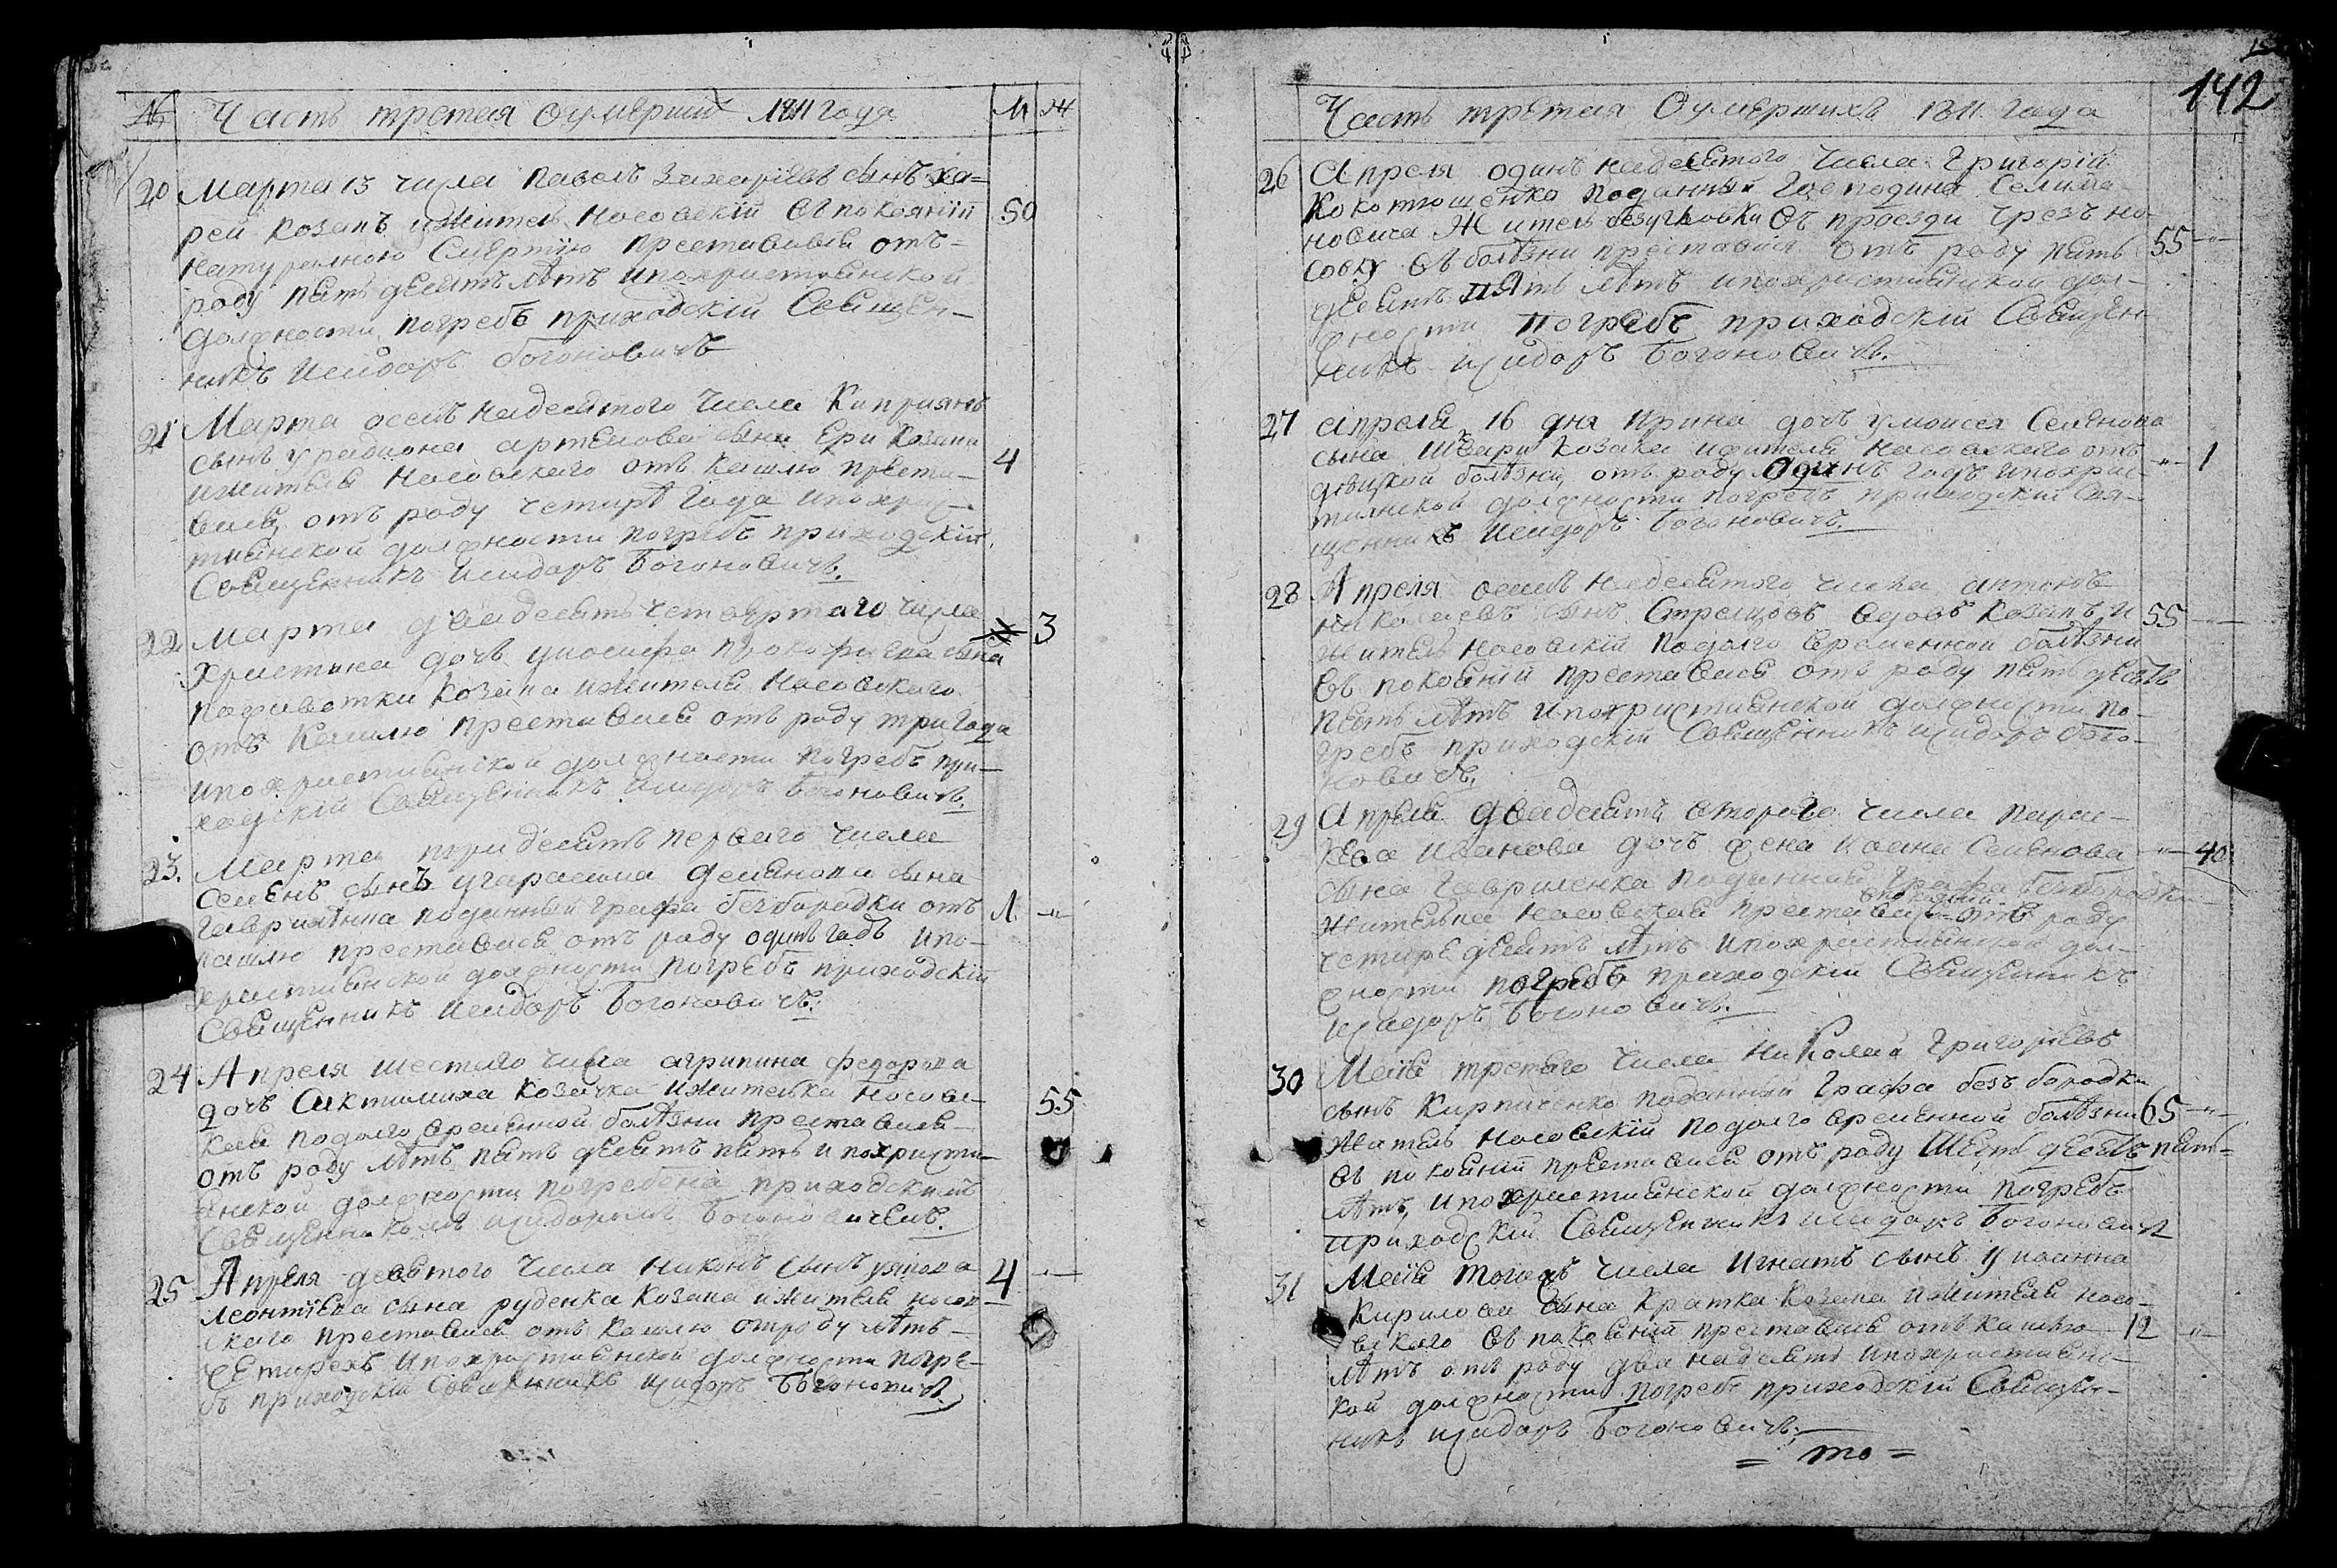 № Часть третея Оумерших 1811 года М Ж
20 Марта 13 числа павелъ Захаріевъ сынъ ха=
рей козакъ ижитель Носовскій въ покояніи 50
натуралною Смертїю преставився отъ=
роду пять десятъ лѣтъ ипохристиянской
должности погребъ приходскій Священ-
никъ Исидоръ богоновичъ
21 Марта осемъ надесятого числа Киприянъ
сынъ у радиона артемова сына козака
ижителя Носовского отъ кашлю преста- 4
вися отъ роду четирѣ года ипохрис-
тиянской должности погребъ приходскій
Священникъ исидоръ Богоновичъ.
22 Марта двадесять четвертаго числа 3
христина дочъ уиосифа прокофиева сына
козака ижителя Носовского
отъ Кашлю преставися отъ роду три Года
ипохристиянской должности погребъ при-
ходскій Священникъ исидоръ Богоновичъ.
23. Марта тридесять первого числа
Семенъ сынъ угарасима демянова сына
гаврилѣнка подданный графа безбородки отъ 1. -"-
кашлю преставися отъ роду одинъ годъ ипо-
християнской должности погребъ приходскій
Священникъ Исидоръ Богоновичъ.
24 Апреля шестого числа агрипина федорова
дочъ козачка ижителка Носов-
ская подолго временной болѣзни преставися 55
отъ роду лѣтъ пять десятъ пять и похристи-
янской должности погребена приходскимъ
Священникомъ исидоромъ Богоновичемъ.
25 Апреля девятого числа никонъ сынъ уякова 4
леонтїева сына руденка козака ижителя носов-
ского преставися отъ кашлю отроду лѣтъ-
четирехъ ипохристиянской должности погре-
бъ приходскій Священникъ исидоръ Богоновичъ
142
Часть третея Оумершихъ 1811. года
26 Апреля одинъ надесятого числа Григорій
Кокотюшенко поданный Господина Селима-
новича Житель безугловки въ проезди чрезъ но-
совку въ болѣзни преставися отъ роду пять 55 -"-
десятъ пять лѣтъ ипохристиянской дол-
жности погребъ приходскій Священ-
никъ исидоръ Богоновичъ.
27 апреля 16 дня Ирина дочъ умоисея Семенова
сына Козака ижителя Носовского отъ
болѣзни отъ роду Одинъ годъ ипохрис- -"- 1
тиянской должности погребъ приходскій Свя-
щенникъ Исидоръ Богоновичъ.
28 Апреля осемъ надесятого числа антонъ
николаевъ сынъ Стрелцовъ вдовъ козакъ и 55
житель носовскій подолго временной болѣзни
въ покояніи преставися отъ роду пять десятъ
пять лѣтъ ипохристиянской должности по-
гребъ приходскій Священникъ исидоръ бого-
новичъ,
29 Апреля двадесятъ второго числа парас-
кева Иванова дочъ жена Иоана Семенова -"- 40
сына гавриленка подданная Графа безбородки
жителька носовская преставися въ покояніи отъ роду
четире десятъ лѣтъ ипохристиянской дол-
жности погребъ приходскій Священникъ
исидоръ Богоновичъ.
30 Маія третего числа Николай Григорїевъ
сынъ Кирпиченко поданный Графа безъ бородки
житель носовскій подолго временной болѣзни 65 -"-
въ покояніи преставися отъ роду Шестъ десятъ пять-
лѣтъ, ипохристиянской должности погребъ
приходскій Священникъ исидоръ Богоновичъ
31 Маія тогожъ числа Игнатъ сынъ у иоанна
Кирилова сына Кратка козака ижителя носо-
вского въ покояніи преставися отъ кашлю 12 -"-
лѣтъ отъ роду два надесять ипохристиянс-
кой должности погребъ приходскій Священ-
никъ исидоръ Богоновичъ.
= то =